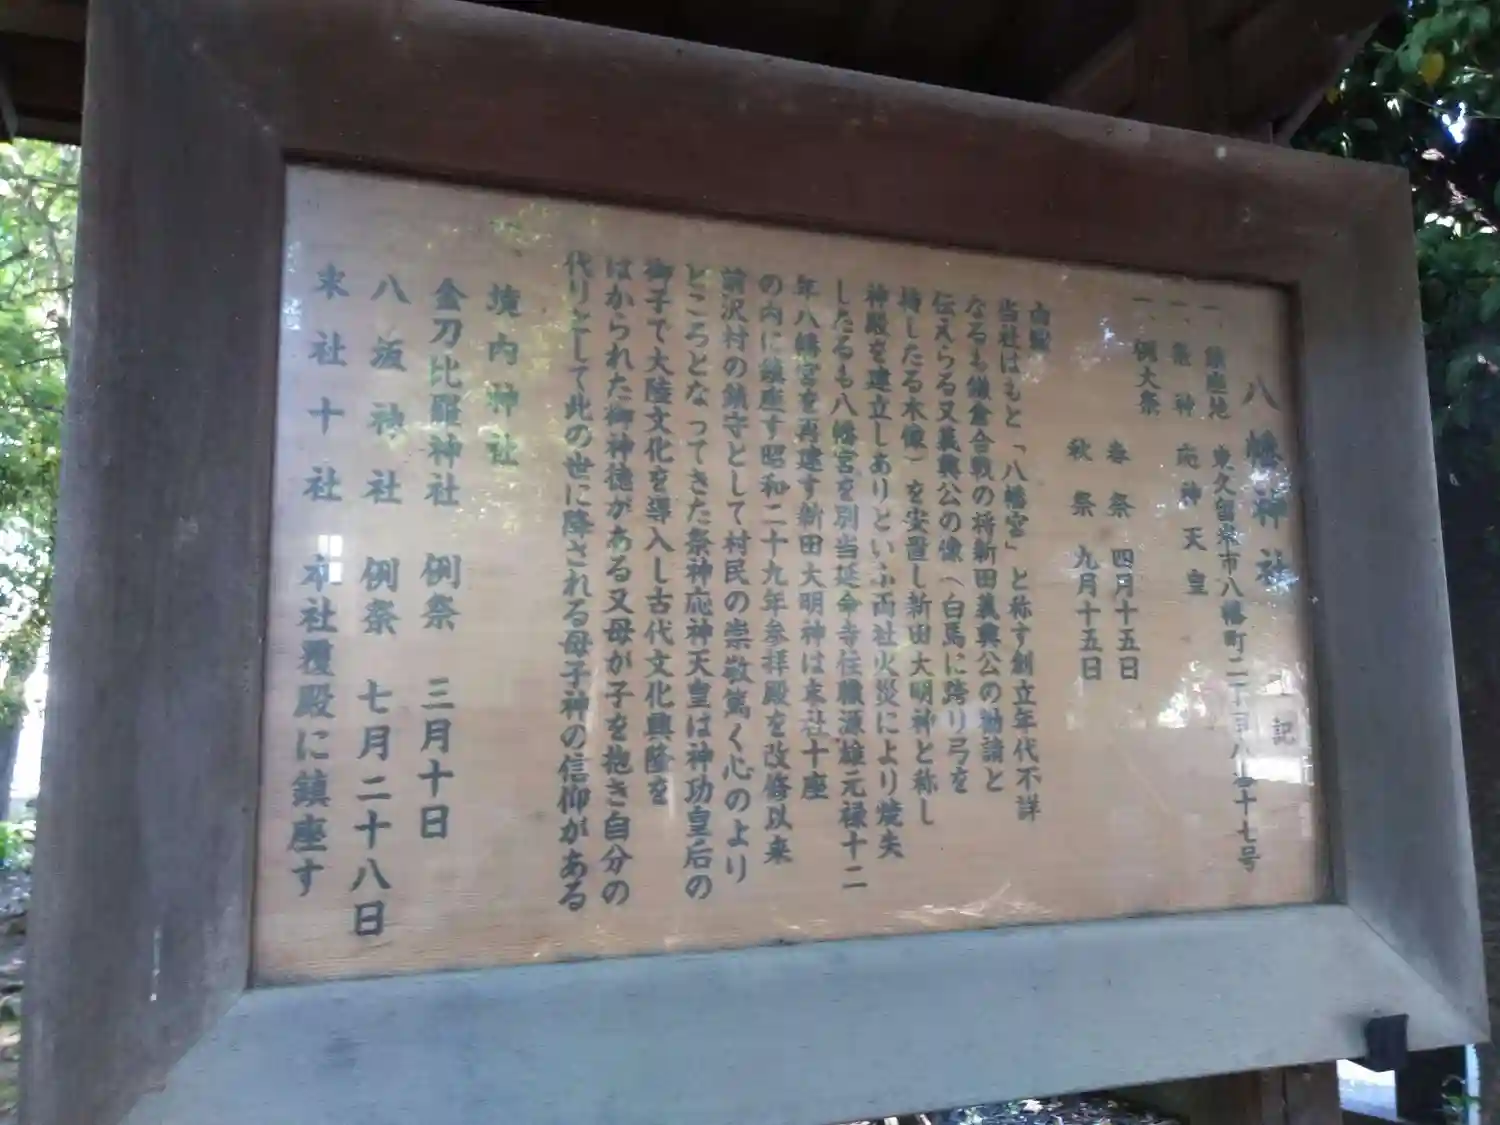 八幡神社 記
一、鎮座地 東久留米市八幡町二丁目八番十七号
一、祭神 応神天皇
一、例大祭
春祭 四月十五日
秋祭 九月十五日
由緒
当社はもと「八幡宮」と称す創立年代不詳
なるも鎌倉合戦の将新田義興公の勧請と
伝えらる又義興公の像(白馬に跨り弓を
持したる木像)を安置し新田大明神と称し
神殿を建立しありといふ両社火災により焼失
したるも八幡宮を別当延命寺住職源雄元禄十二
年八幡宮を再建す新田大明神は末社十座
の内に鎮座す昭和二十九年参拝殿を改修以来
前沢村の鎮守として村民の崇敬篤く心のより
ところとなってきた祭神応神天皇は神功皇后の
御子で大陸文化を導入し古代文化興隆を
はかられた御神徳がある又母が子を抱き自分の
代りとして此の世に降される母子神の信仰がある
境内神社
金刀比羅神社 例祭 三月十日
八坂神社 例祭 七月二十八日
末社十社 本社覆殿に鎮座す